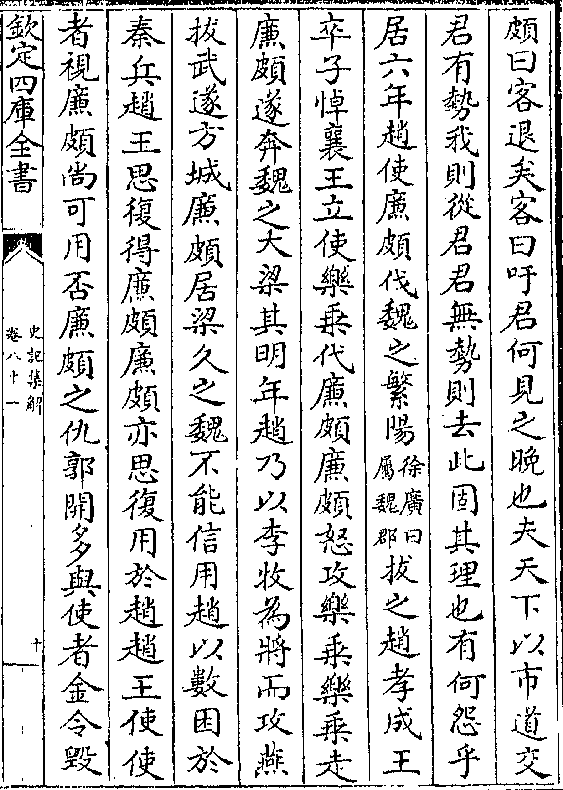 頗曰客退矣客曰吁君何見之晚也夫天下以市道交
君有勢我則從君君無勢則去此固其理也有何怨乎
居六年趙使廉頗伐魏之繁陽徐廣曰屬魏郡拔之趙孝成王
卒子悼襄王立使樂乘代廉頗廉頗怒攻樂乘樂乘走
廉頗遂奔魏之大梁其明年趙乃以李牧為將而攻燕
拔武遂方城廉頗居梁久之魏不能信用趙以數困於
秦兵趙王思復得廉頗廉頗亦思復用於趙趙王使使
者視廉頗尚可用否廉頗之仇郭開多與使者金令毀
欽定四庫全書
史記集解
卷八十一
十